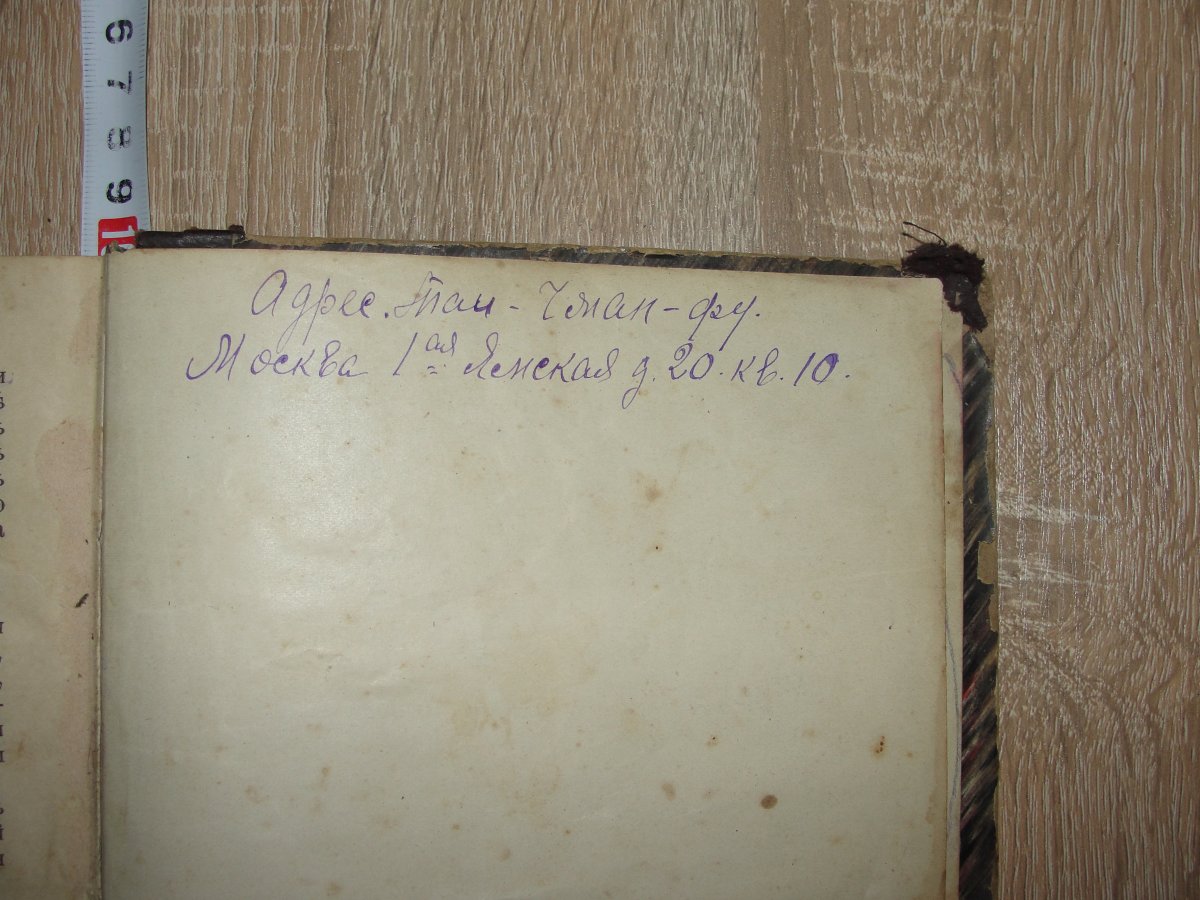 6
7
8
9
10
Адрес. Тан - Чман - фу.
Москва 1ая Ямская д. 20. кв. 10.
и
ѣ
ь
ь
ь
о
а